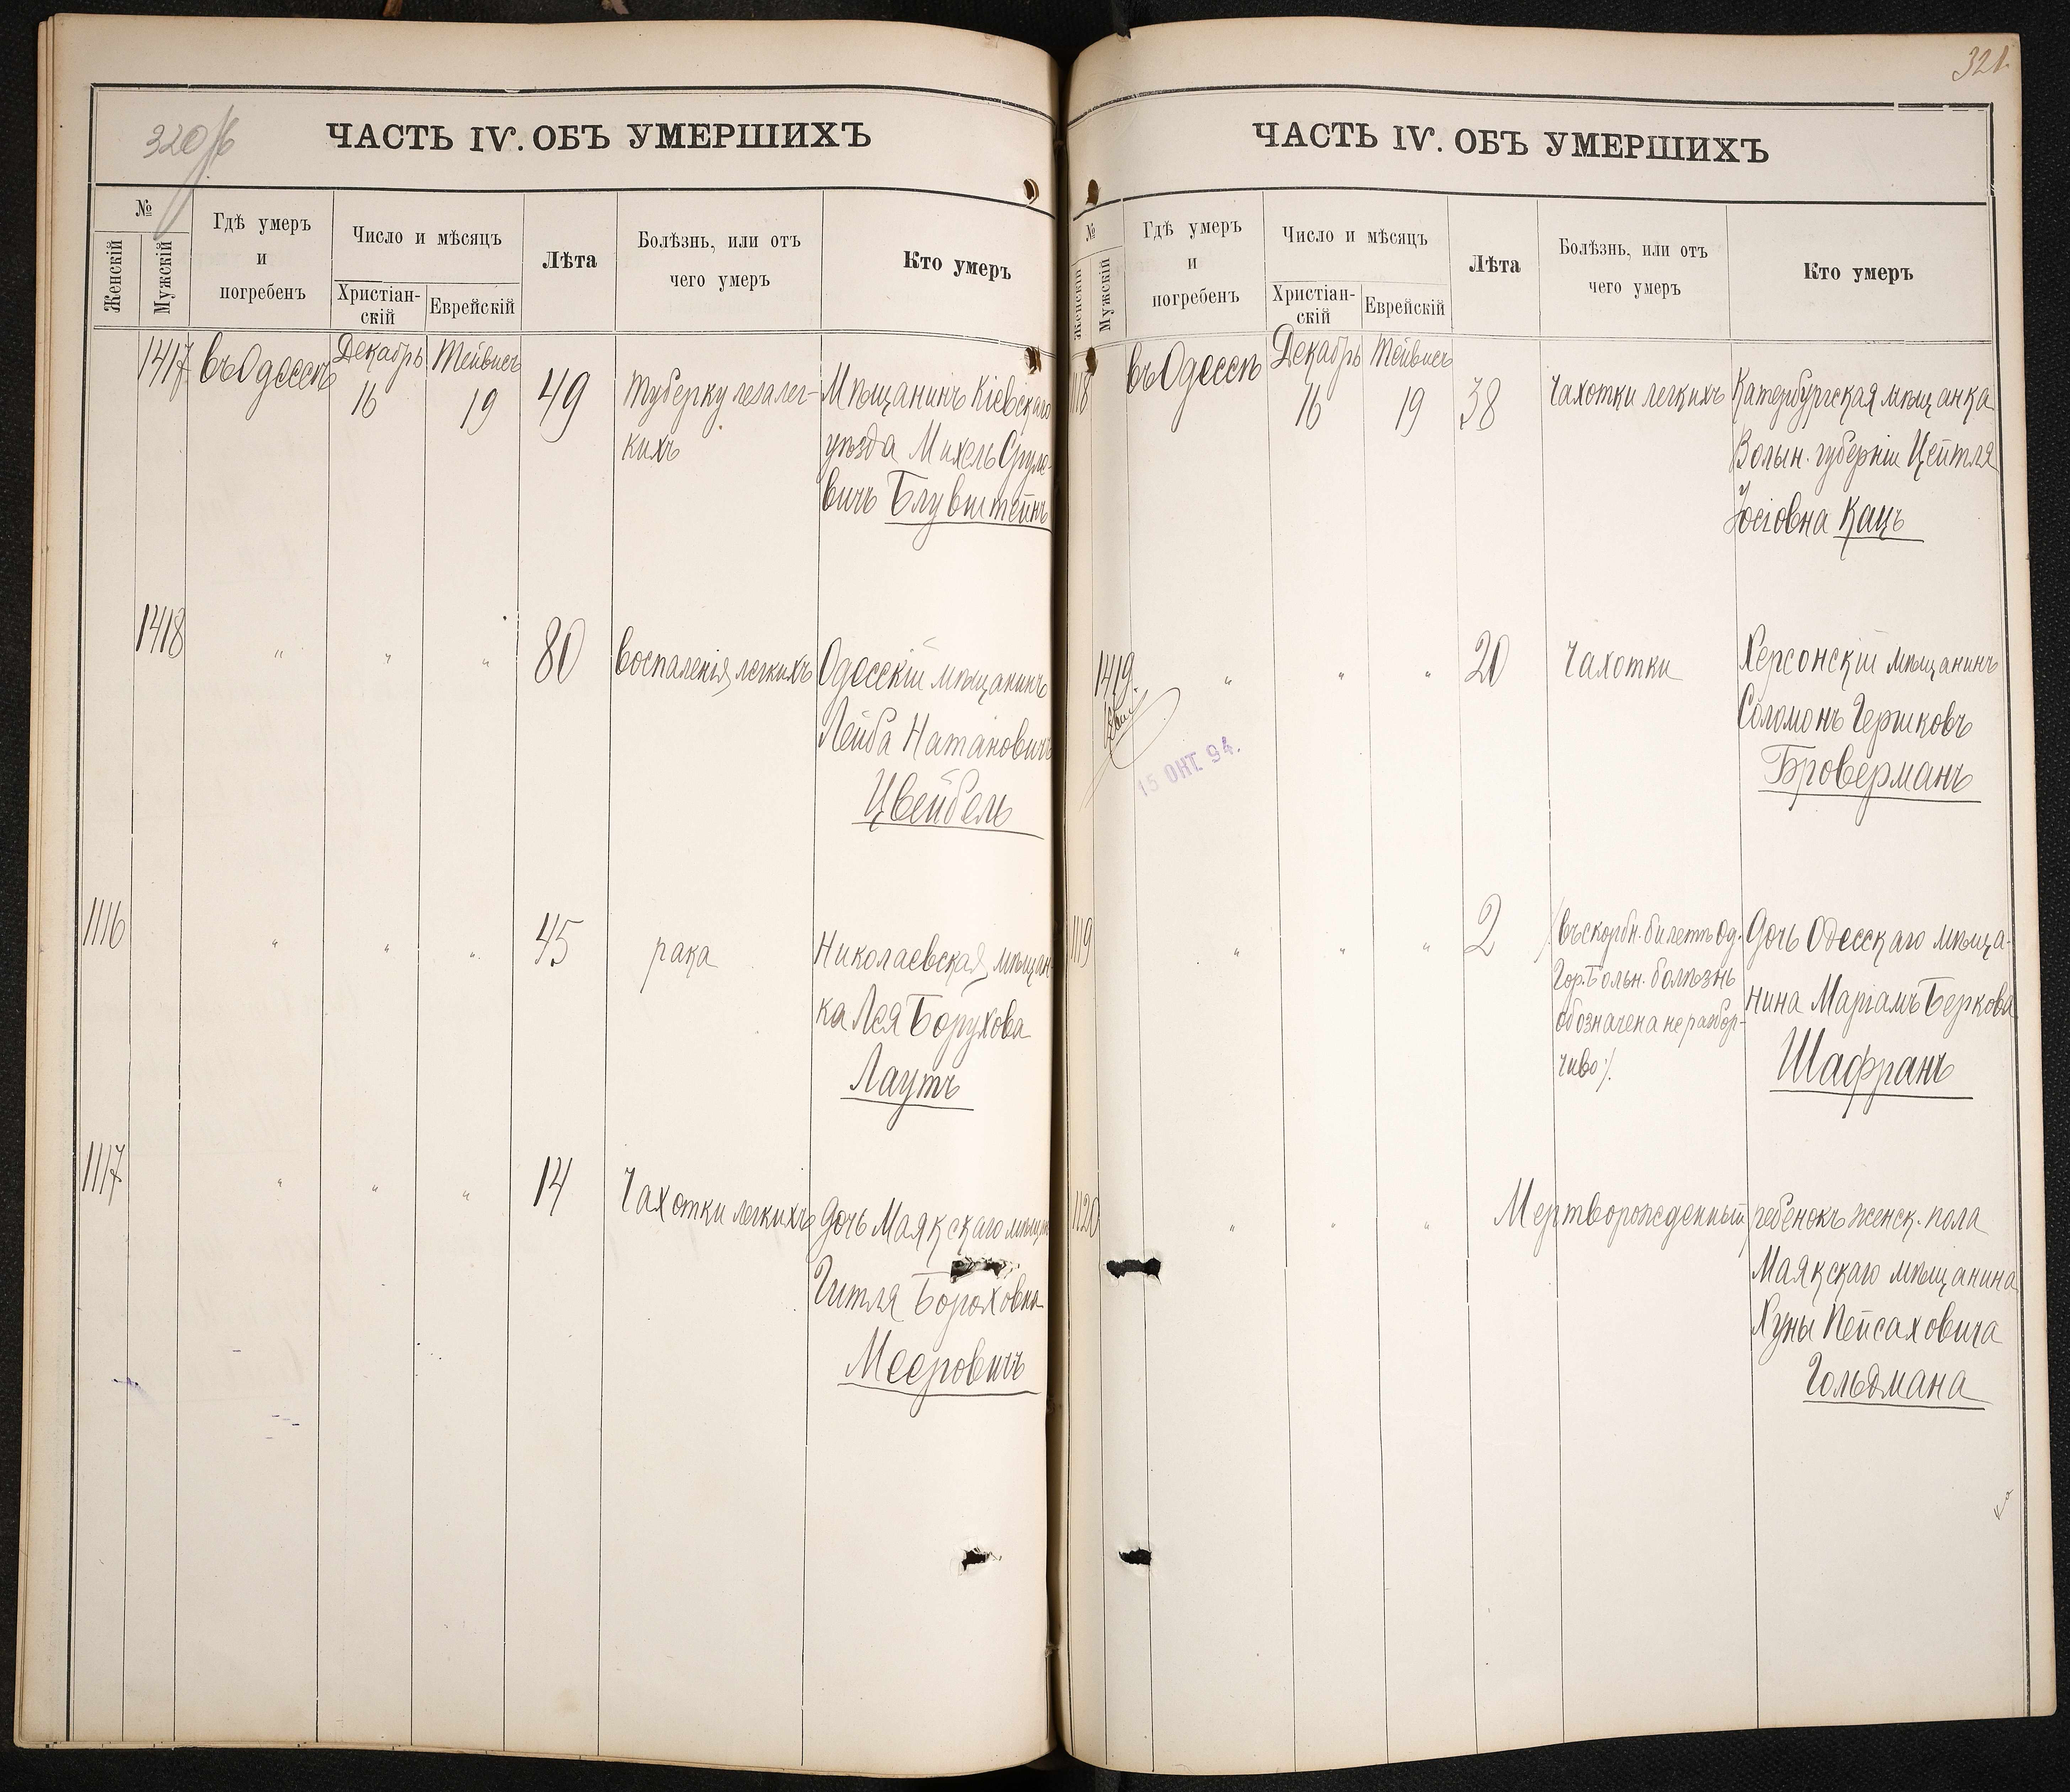 320/б
ЧАСТЬ IV. ОБЪ УМЕРШИХЪ
№
Женскій
Мужскій
Гдѣ умеръ
и
погребенъ
Число и мѣсяцъ
Христіан-
скій
Еврейскій
Лѣта
Болѣзнь, или отъ
чего умеръ
Кто умеръ
1417 въ Одессѣ Декабрь Тейвисъ
16 19 49 Туберкулеза лег-
кихъ
Мѣщанинъ Кіевскаго
уѣзда Михель Сруле-
вичъ Блувштейнъ
1418 " " " 80 воспаленія легкихъ
Одесскій мѣщанинъ
Лейба Натановичъ
Цвейбель
1116 " " " 45 рака
Николаевская мѣщан-
ка Лея Борухова
Лаутъ
1117 " " " 14 Чахотки легкихъ
дочь Маякскаго
Гитля Бороховна
Мееровичъ
321.
ЧАСТЬ IV. ОБЪ УМЕРШИХЪ
№
Женскій
Мужскій
Гдѣ умеръ
и
погребенъ
Число и мѣсяцъ
Христіан-
скій
Еврейскій
Лѣта
Болѣзнь, или отъ
чего умеръ
Кто умеръ
1118 въ Одессѣ Декабрь Тейвисъ
16 19 38 Чахотки легкихъ
Катербургская мѣщанка
Волын. губерніи Цейтля
Іосіовна Кацъ
1419. " " " 20 Чахотки
Херсонскій мѣщанинъ
Соломонъ Гершковъ
Броверманъ
15 ОКТ. 94.
1119 " " " 2 /:въ скорбн. билетѣ Од.
Гор. Больн. болѣзнь
обозначена не разбор-
чиво:/.
Дочь Одесскаго мѣща-
нина Маріамъ Беркова
Шафранъ
1120 " " " Мертворожденный ребенокъ женск. пола
Маякскаго мѣщанина
Хуны Пейсаховича
Гольдмана